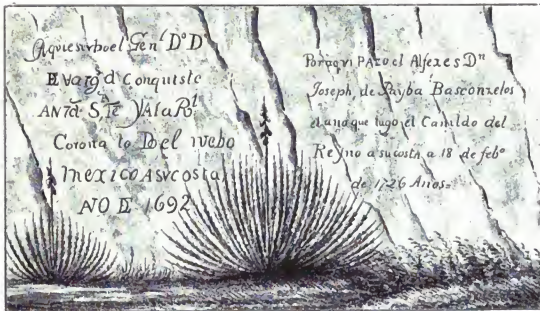 Aqui estuboel Genl Do Do
E Varg d Conquisto
ANTa S,Te YAlaRl
Corona to Del nvebo
Mexico Asvcosta
AÑO E 1692
Poraqvi PAzo el Alferes Dn
Joseph de Payba Basconzelos
el ano que tugo el Cauildo del
Reyno a su costa a 18 de febo
de 1726 Años=